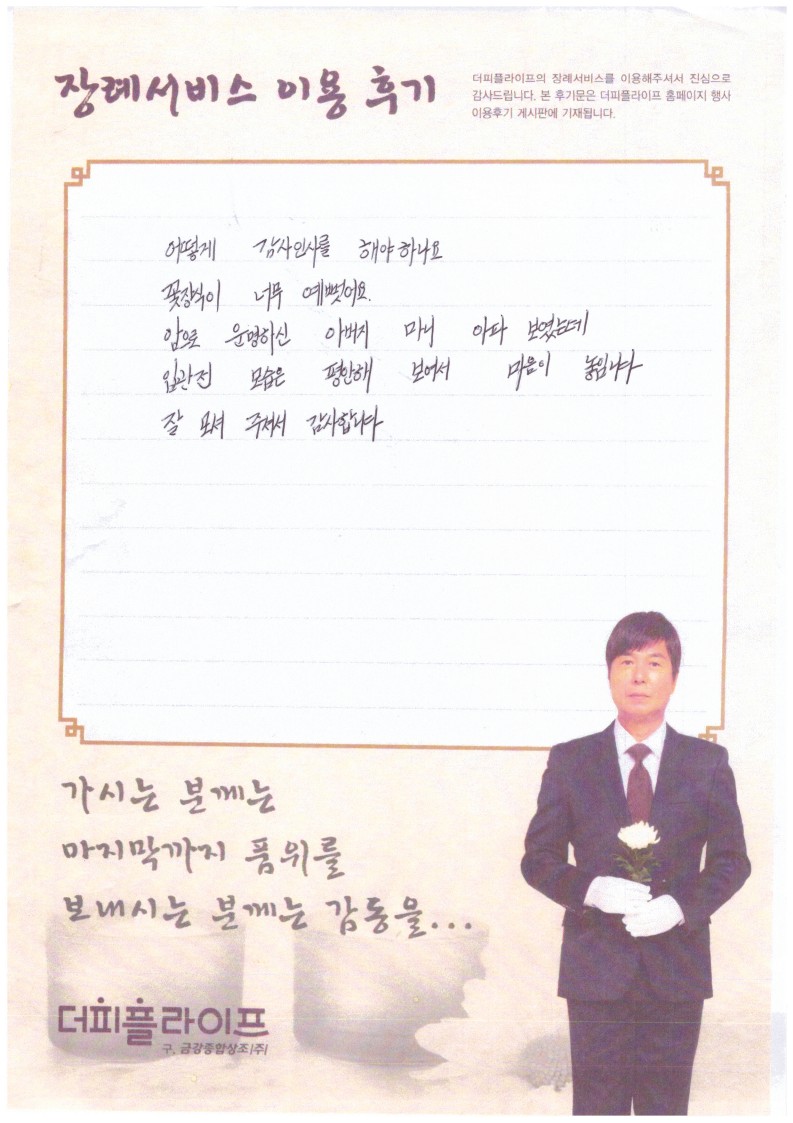 장례서비스 이용 후기
더피플라이프의 장례서비스를 이용해주셔서 진심으로
감사드립니다. 본 후기문은 더피플라이프 홈페이지 행사
이용후기 게시판에 기재됩니다.
어떻게 감사인사를 해야하나요
꽃장식이 너무 예뻣어요.
암으로 운명하신 아버지 마니 아파 보였는데
입관전 모습은 평안해 보여서 마음이 놓입니다
잘 모셔 주셔서 감사합니다
가시는 분께는
마지막까지 품위를
보내시는 분께는 감동을...
더피플라이프
구. 금강종합상조(주)